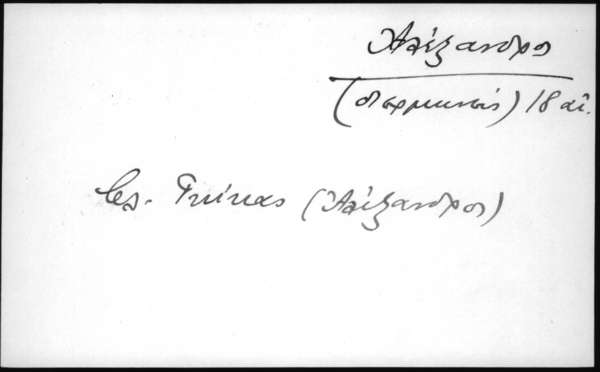 Ἀλέξανδρος
(διερμηνεύς) 18 αἰ.
βλ. Γκίκας (Ἀλέξανδρος)